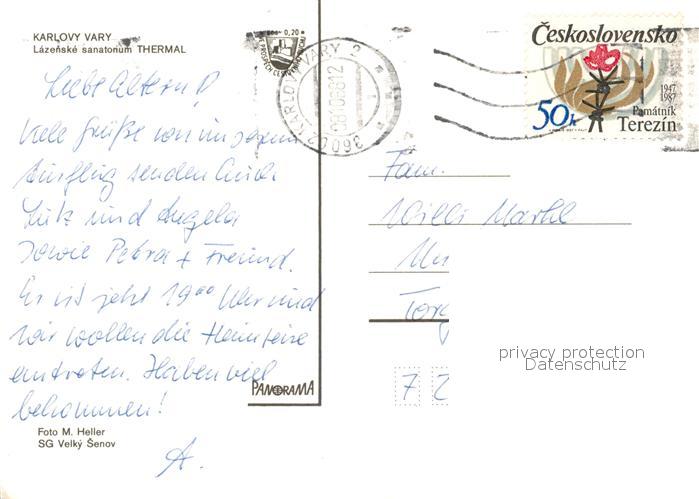 KARLOVY VARY
Lázeňské sanatorium THERMAL
Liebe Eltern!
Viele Grüße von unserem
Ausflug senden Euch
Lutz und Angela
sowie Petra + Freund.
Es ist jetzt 19⁰⁰ Uhr und
wir wollen die Heimreise
antreten. Haben viel
bekommen!
A.
PANORAMA
Foto M. Heller
SG Velký Šenov
0,20
KARLOVY VARY 2
36002
Československo
1947
1987
Památník
Terezín
50h
Fam.
Willi
7 2
privacy protection
Datenschutz